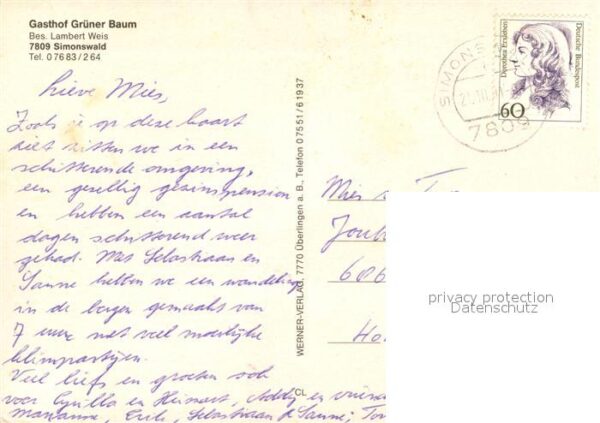 Gasthof Grüner Baum
Bes. Lambert Weis
7809 Simonswald
Tel. 07683/264
Lieve Mies,
Zoals u op deze kaart
ziet zitten we in een
schitterende omgeving,
een gezellig gezinspension
en hebben een aantal
dagen schitterend weer
gehad. Met Sebastiaan en
Sanne hebben we een wandeling
in de bergen gemaakt van
7 uur met veel moeilijke
klimpartijen.
Veel liefs en groeten ook
voor en Heimert, Addy en
Marianne, Erik, Sebastiaan & Sanne; Tom
WERNER-VERLAG, 7770 Überlingen a. B., Telefon 07551/61937
CL
SIMONS
7809
Dorothea Erxleben
Deutsche Bundespost
60
Mies
686
privacy protection
Datenschutz